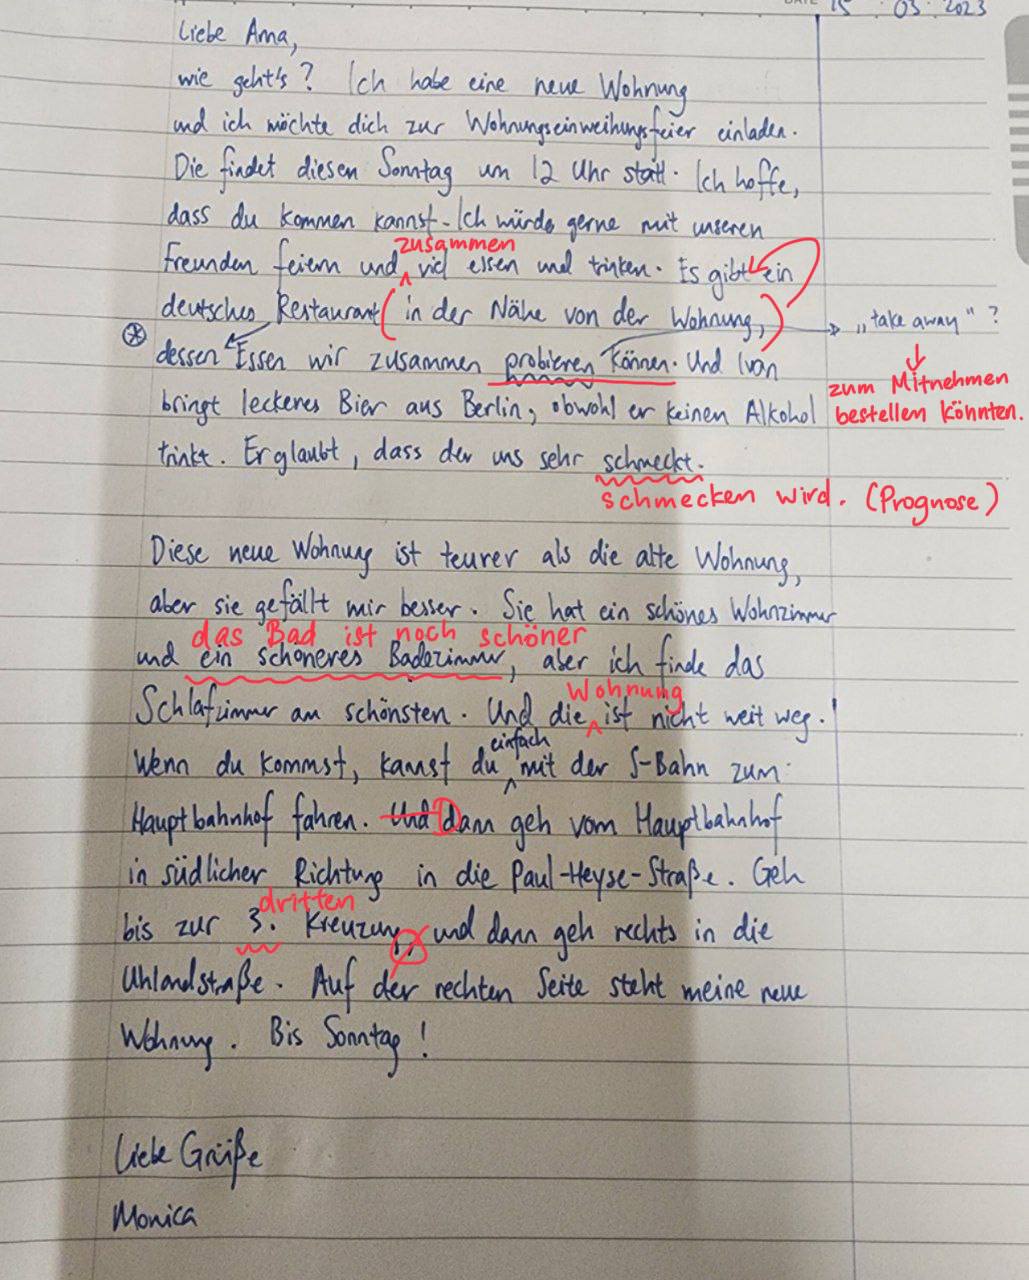 DATE 15 . 03 . 2023
Liebe Ama,
wie geht's? Ich habe eine neue Wohnung
und ich möchte dich zur Wohnungseinweihungsfeier einladen.
Die findet diesen Sonntag um 12 Uhr statt. Ich hoffe,
dass du kommen kannst. Ich würde gerne mit unseren
zusammen
Freunden feiern und viel essen und trinken. Es gibt ein
deutsches Restaurant (in der Nähe von der Wohnung,) „take away" ?
dessen Essen wir zusammen probieren können. Und Ivan
zum Mitnehmen
bringt leckeres Bier aus Berlin, obwohl er keinen Alkohol
bestellen könnten.
trinkt. Er glaubt, dass der uns sehr schmeckt.
schmecken wird. (Prognose)
Diese neue Wohnung ist teurer als die alte Wohnung,
aber sie gefällt mir besser. Sie hat ein schönes Wohnzimmer
das Bad ist noch schöner
und ein schöneres Badezimmer, aber ich finde das
Wohnung
Schlafzimmer am schönsten. Und die ist nicht weit weg.
einfach
Wenn du kommst, kannst du mit der S-Bahn zum
Hauptbahnhof fahren. Und Dann geh vom Hauptbahnhof
in südlicher Richtung in die Paul-Heyse-Straße. Geh
dritten
bis zur 3. Kreuzung, und dann geh rechts in die
Uhlandstraße. Auf der rechten Seite steht meine neue
Wohnung. Bis Sonntag!
Liebe Grüße
Monica